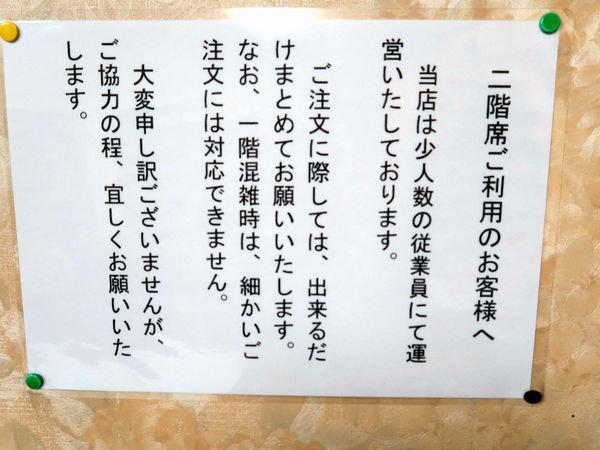 二階席ご利用のお客様へ
当店は少人数の従業員にて運
営いたしております。
ご注文に際しては、出来るだ
けまとめてお願いいたします。
なお、一階混雑時は、細かいご
注文には対応できません。
大変申し訳ございませんが、
ご協力の程、宜しくお願いいた
します。